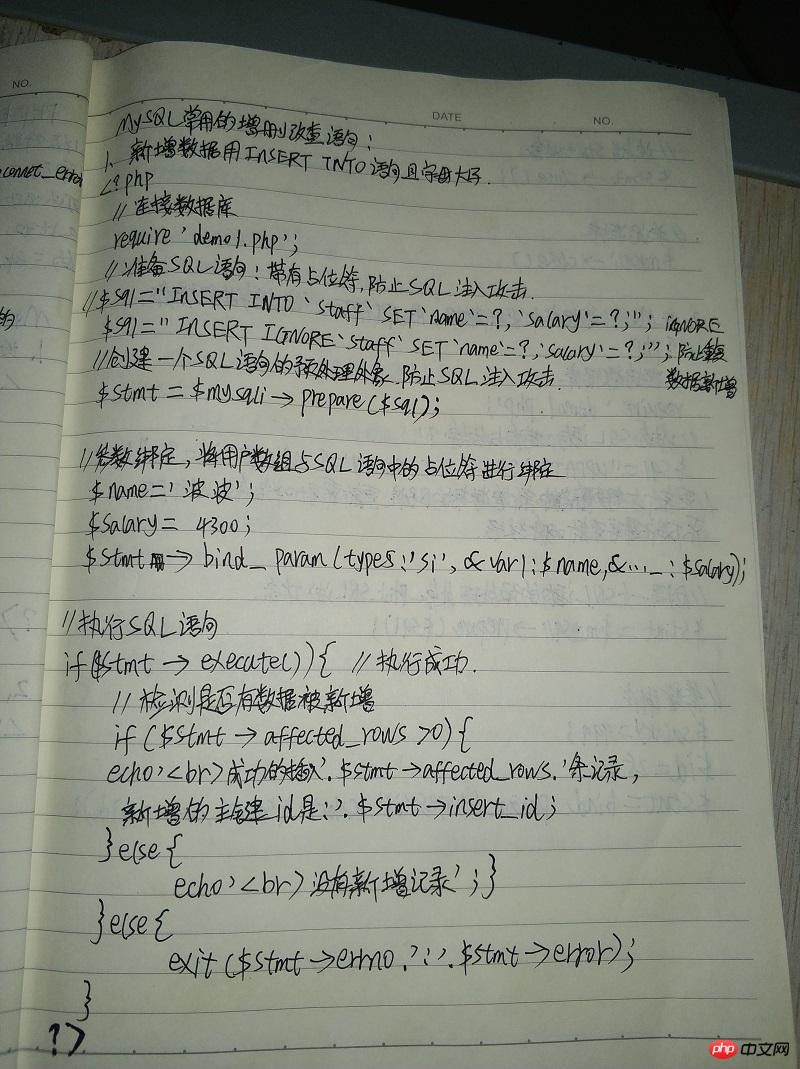 NO.
connet_error
的
DATE
NO.
MySQL常用的增删改查语句:
1、新增数据用INSERT INTO语句且字母大写.
<?php
// 连接数据库
require 'demo1.php';
// 准备SQL语句:带有占位符,防止SQL注入攻击.
//$sql="INSERT INTO `staff` SET `name`=?,`salary`=?;";
$sql="INSERT IGNORE `staff` SET `name`=?,`salary`=?;";
IGNORE
防止重复
数据新增
//创建一个SQL语句的预处理对象.防止SQL注入攻击.
$stmt = $mysqli→prepare($sql);
//参数绑定,将用户数组与SQL语句中的占位符进行绑定
$name='波波';
$salary= 4300;
$stmt→bind_param(types:'si',&var1:$name,&..._:$salary);
//执行SQL语句
if($stmt→execute()){ //执行成功.
// 检测是否有数据被新增
if($stmt→affected_rows>0){
echo'<br>成功的插入'.$stmt→affected_rows.'条记录,
新增的主键id是:'.$stmt→insert_id;
}else{
echo'<br>没有新增记录';}
}else{
exit($stmt→errno.':'.$stmt→error);
}
?>
php 中文网